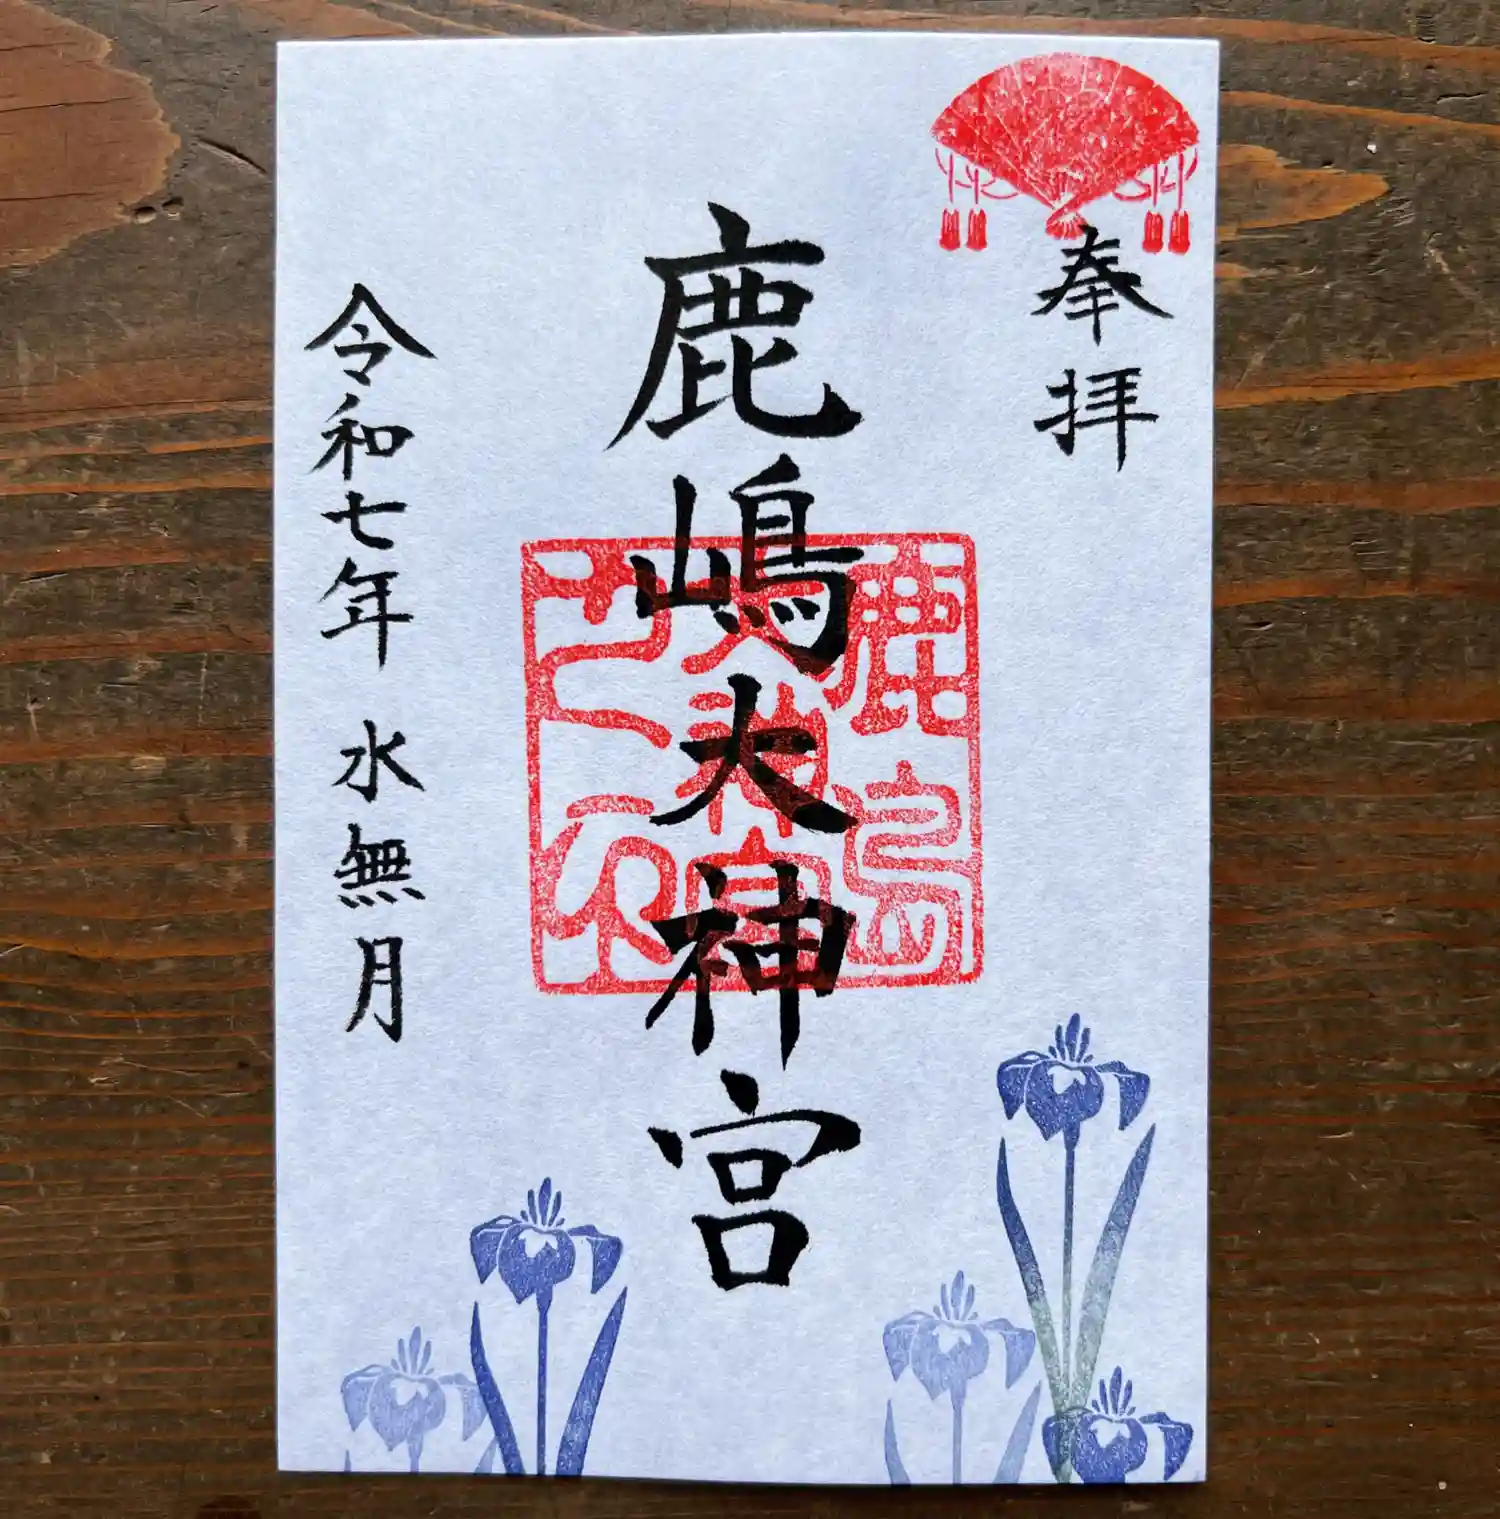 奉拝
鹿嶋大神宮
令和七年 水無月
鹿島
大神宮
之印